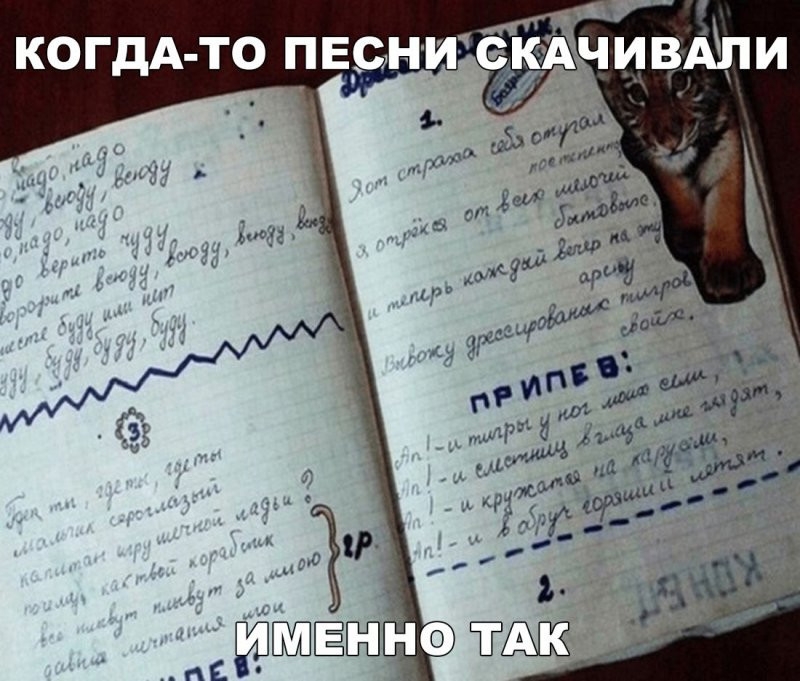 КОГДА-ТО ПЕСНИ СКАЧИВАЛИ
надо, надо
всюду, всюду
надо, надо
верить чуду
всюду, всюду, всюду, всюду
буду или нет
буду, буду, буду.
3
Где ты, где ты, где ты
мальчик сероглазый
капитан игрушечной ладьи?
почему, как твой кораблик
все плывут плывут за мною
давние мечтания мои
2р.
1.
Я от страха себя отучал
постепенно,
я отрёкся от всех мелочей
бытовых,
и теперь каждый вечер на эту
арену
Вывожу дрессированых тигров
своих.
ПРИПЕВ:
Ап!-и тигры у ног моих сели,
Ап!-и с лестниц в глаза мне глядят,
Ап!-и кружатся на карусели,
Ап!-и в обруч горящий летят.
2.
КОНЕЦ
ИМЕННО ТАК